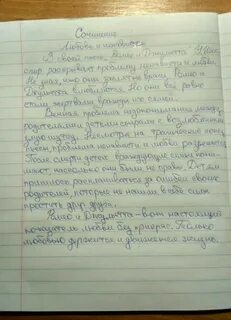 Сочинение
Любовь и ненависть
В своей пьесе „Ромео и Джульетта" Шекс-
пир раскрывает проблему ненависти и любви.
Не зная, что они заклятые враги, Ромео и
Джульетта влюбляются. Но они всё равно
стали жертвами вражды их семей.
Вечная проблема непонимания между
родителями и детьми сыграла с возлюбленными
злую шутку. Несмотря на трагический конец
пьесы, проблема ненависти и любви разрешается.
После смерти детей враждующие семьи пони-
мают, насколько они были не правы. Детям
пришлось расплачиваться за ошибки своих
родителей, которые не нашли в себе силы
простить друг друга.
Ромео и Джульетта – вот настоящий
показатель любви без границ. Только
любовью держится и движется жизнь.